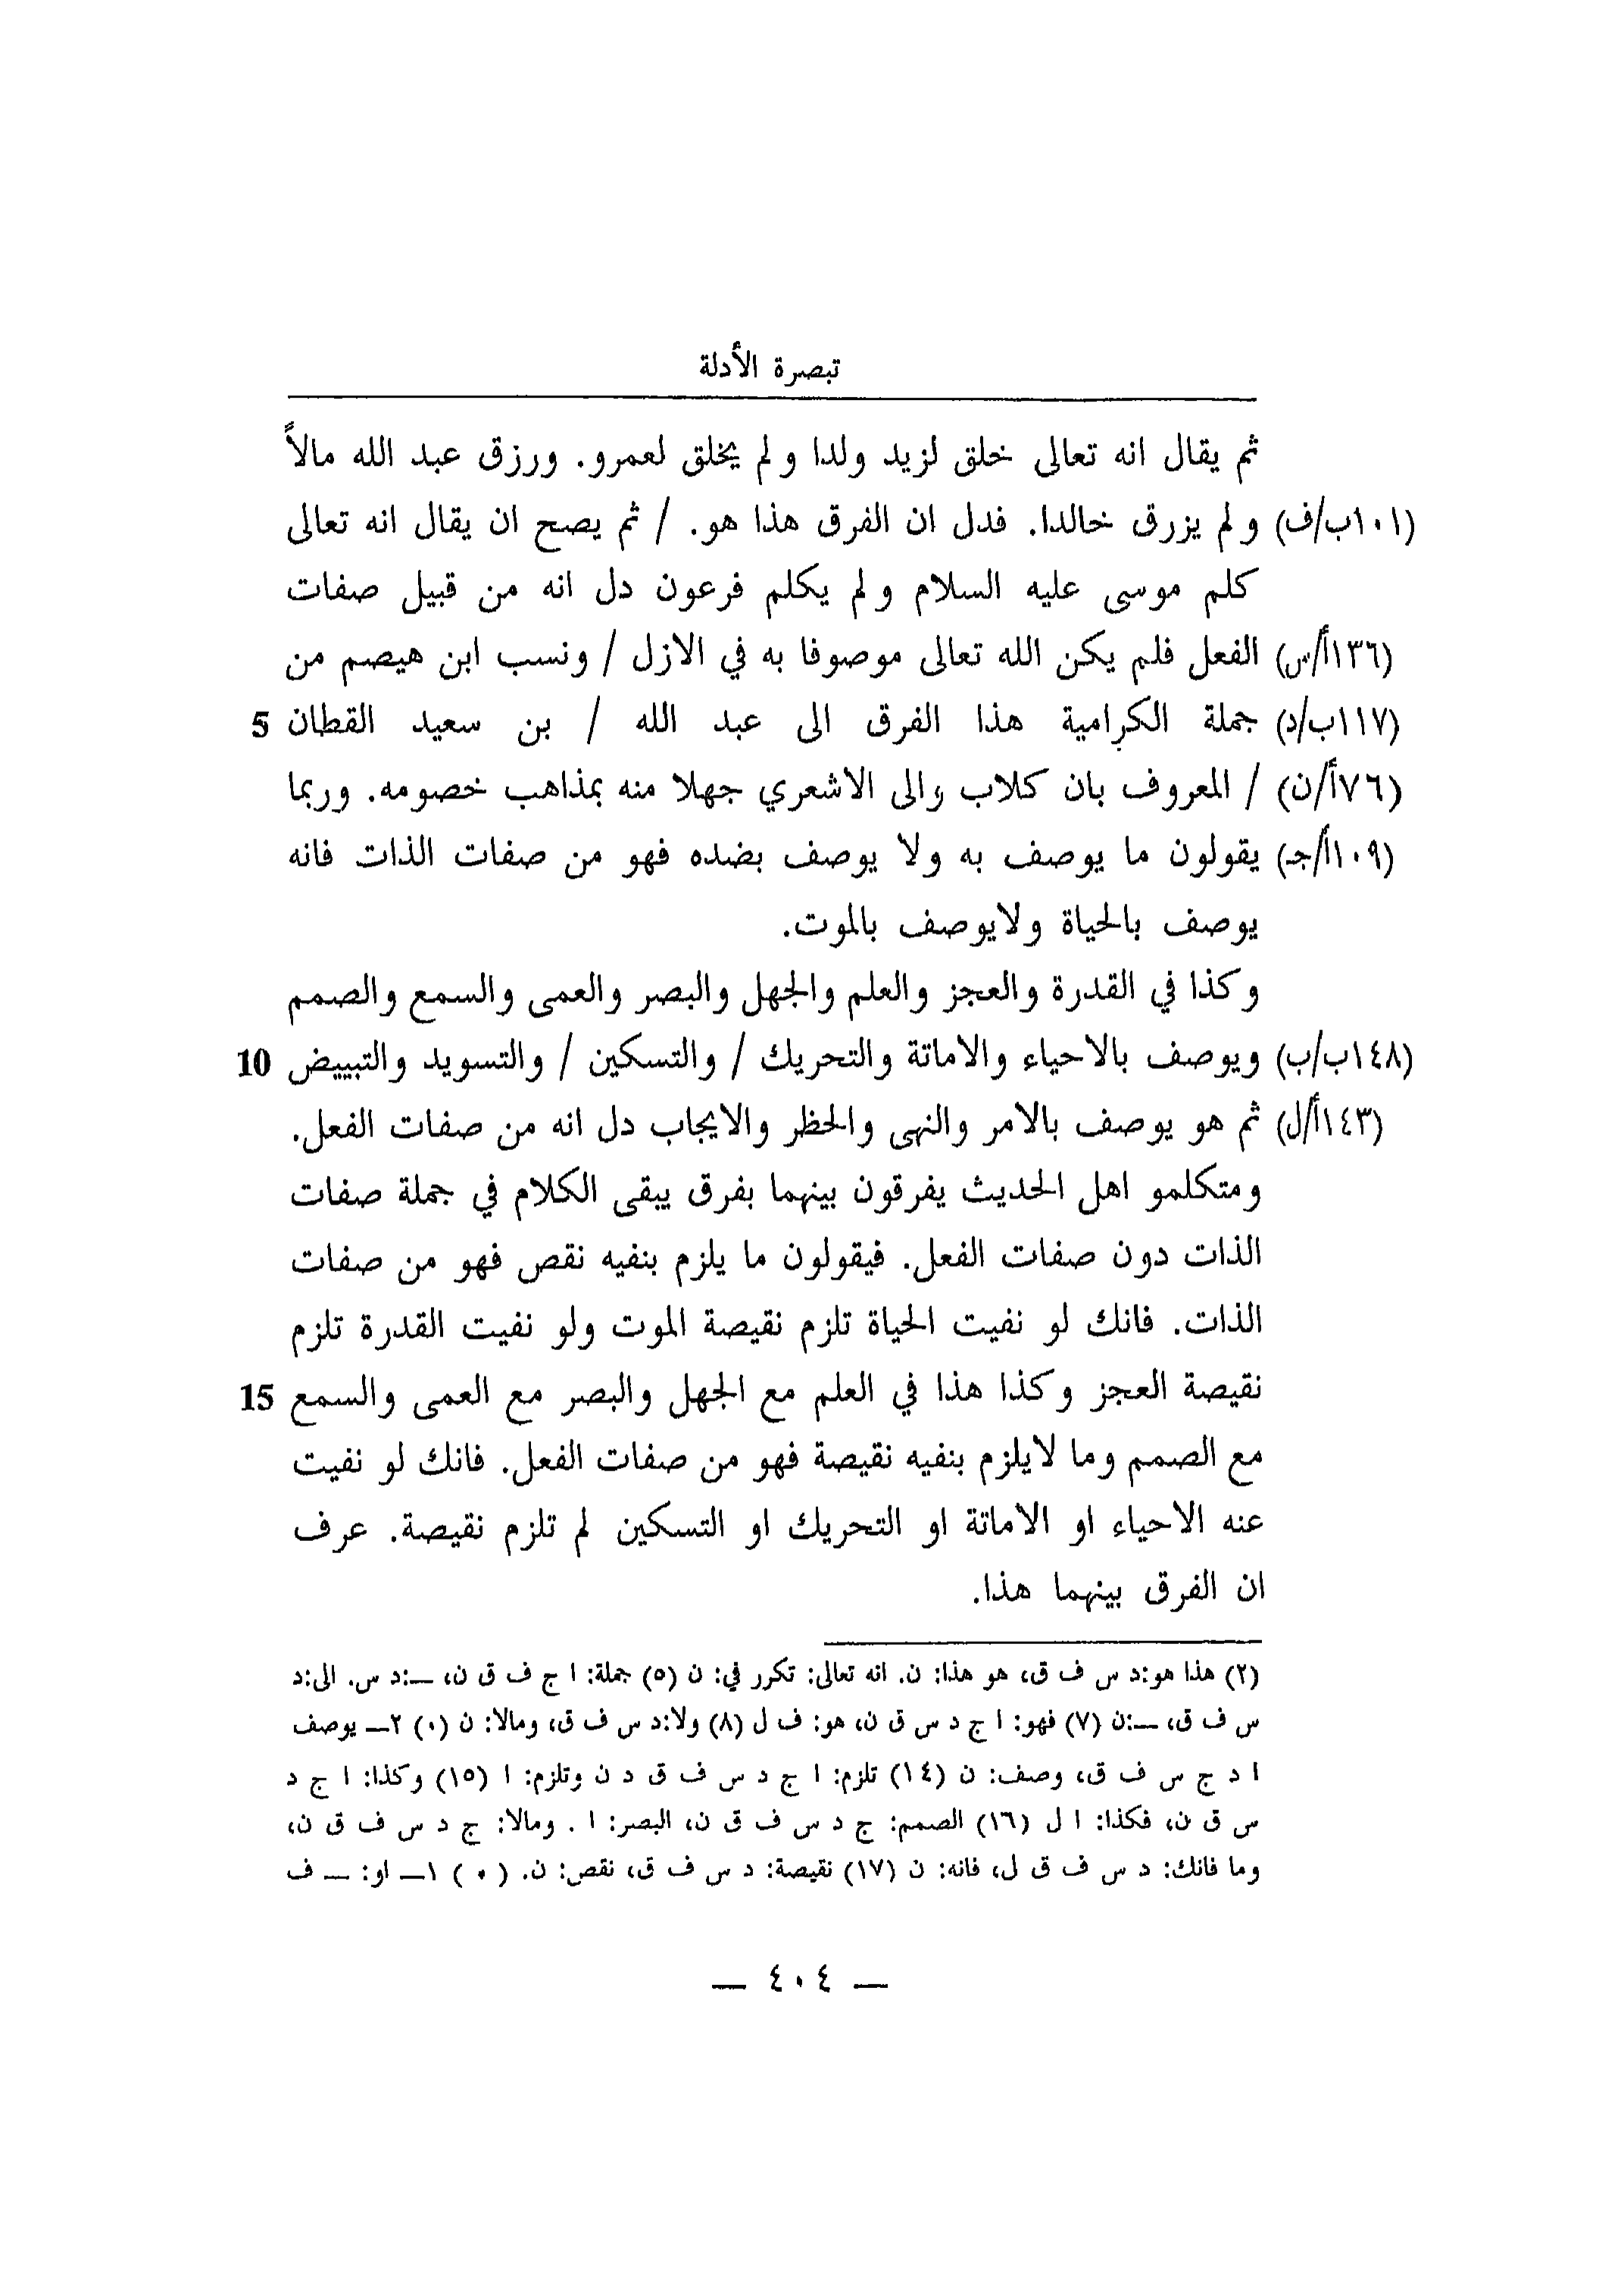 تبصرة الأدلة
ثم يقال انه تعالى خلق لزيد ولدا و لم يخلق لعمرو. ورزق عبد الله مالاً
(١٠١ب/ف) و لم يزرق خالدا. فدل ان الفرق هذا هو. / ثم يصح ان يقال انه تعالى
كلم موسى عليه السلام و لم يكلم فرعون دل انه من قبيل صفات
(١٣٦أ/س) الفعل فلم يكن الله تعالى موصوفا به في الازل / ونسب ابن هيصم من
(١١٧ب/د) جملة الكرامية هذا الفرق الى عبد الله / بن سعيد القطان 5
(٧٦أ/ن) / المعروف بان كلاب والى الاشعري جهلا منه بمذاهب خصومه. وربما
(١٠٩أ/جـ) يقولون ما يوصف به ولا يوصف بضده فهو من صفات الذات فانه
يوصف بالحياة ولايوصف بالموت.
وكذا في القدرة والعجز والعلم والجهل والبصر والعمى والسمع والصمم
(١٤٨ب/ب) ويوصف بالاحياء والاماتة والتحريك / والتسكين / والتسويد والتبييض 10
(١٤٣أ/ل) ثم هو يوصف بالامر والنهى والحظر والايجاب دل انه من صفات الفعل.
ومتكلمو اهل الحديث يفرقون بينهما بفرق يبقى الكلام في جملة صفات
الذات دون صفات الفعل. فيقولون ما يلزم بنفيه نقص فهو من صفات
الذات. فانك لو نفيت الحياة تلزم نقيصة الموت ولو نفيت القدرة تلزم
نقيصة العجز وكذا هذا في العلم مع الجهل والبصر مع العمى والسمع 15
مع الصمم وما لايلزم بنفيه نقيصة فهو من صفات الفعل. فانك لو نفيت
عنه الاحياء او الاماتة او التحريك او التسكين لم تلزم نقيصة. عرف
ان الفرق بينهما هذا.
(٢) هذا هو:د س ف ق، هو هذا: ن. انه تعالى: تكرر في: ن (٥) جملة: ا ج ف ق ن، ــ:د س. الى:د
س ف ق، ــ:ن (٧) فهو: ا ج د س ق ن، هو: ف ل (٨) ولا:د س ف ق، ومالا: ن (٠) ٢ــ يوصف
ا د ج س ف ق، وصف: ن (١٤) تلزم: ا ج د س ف ق د ن وتلزم: ا (١٥) وكذا: ا ج د
س ق ن، فكذا: ا ل (١٦) الصمم: ج د س ف ق ن، البصر: ا . ومالا: ج د س ف ق ن،
وما فانك: د س ف ق ل، فانه: ن (١٧) نقيصة: د س ف ق، نقص: ن. (٠) ١ــ او: ــ ف
ــ ٤٠٤ ــ